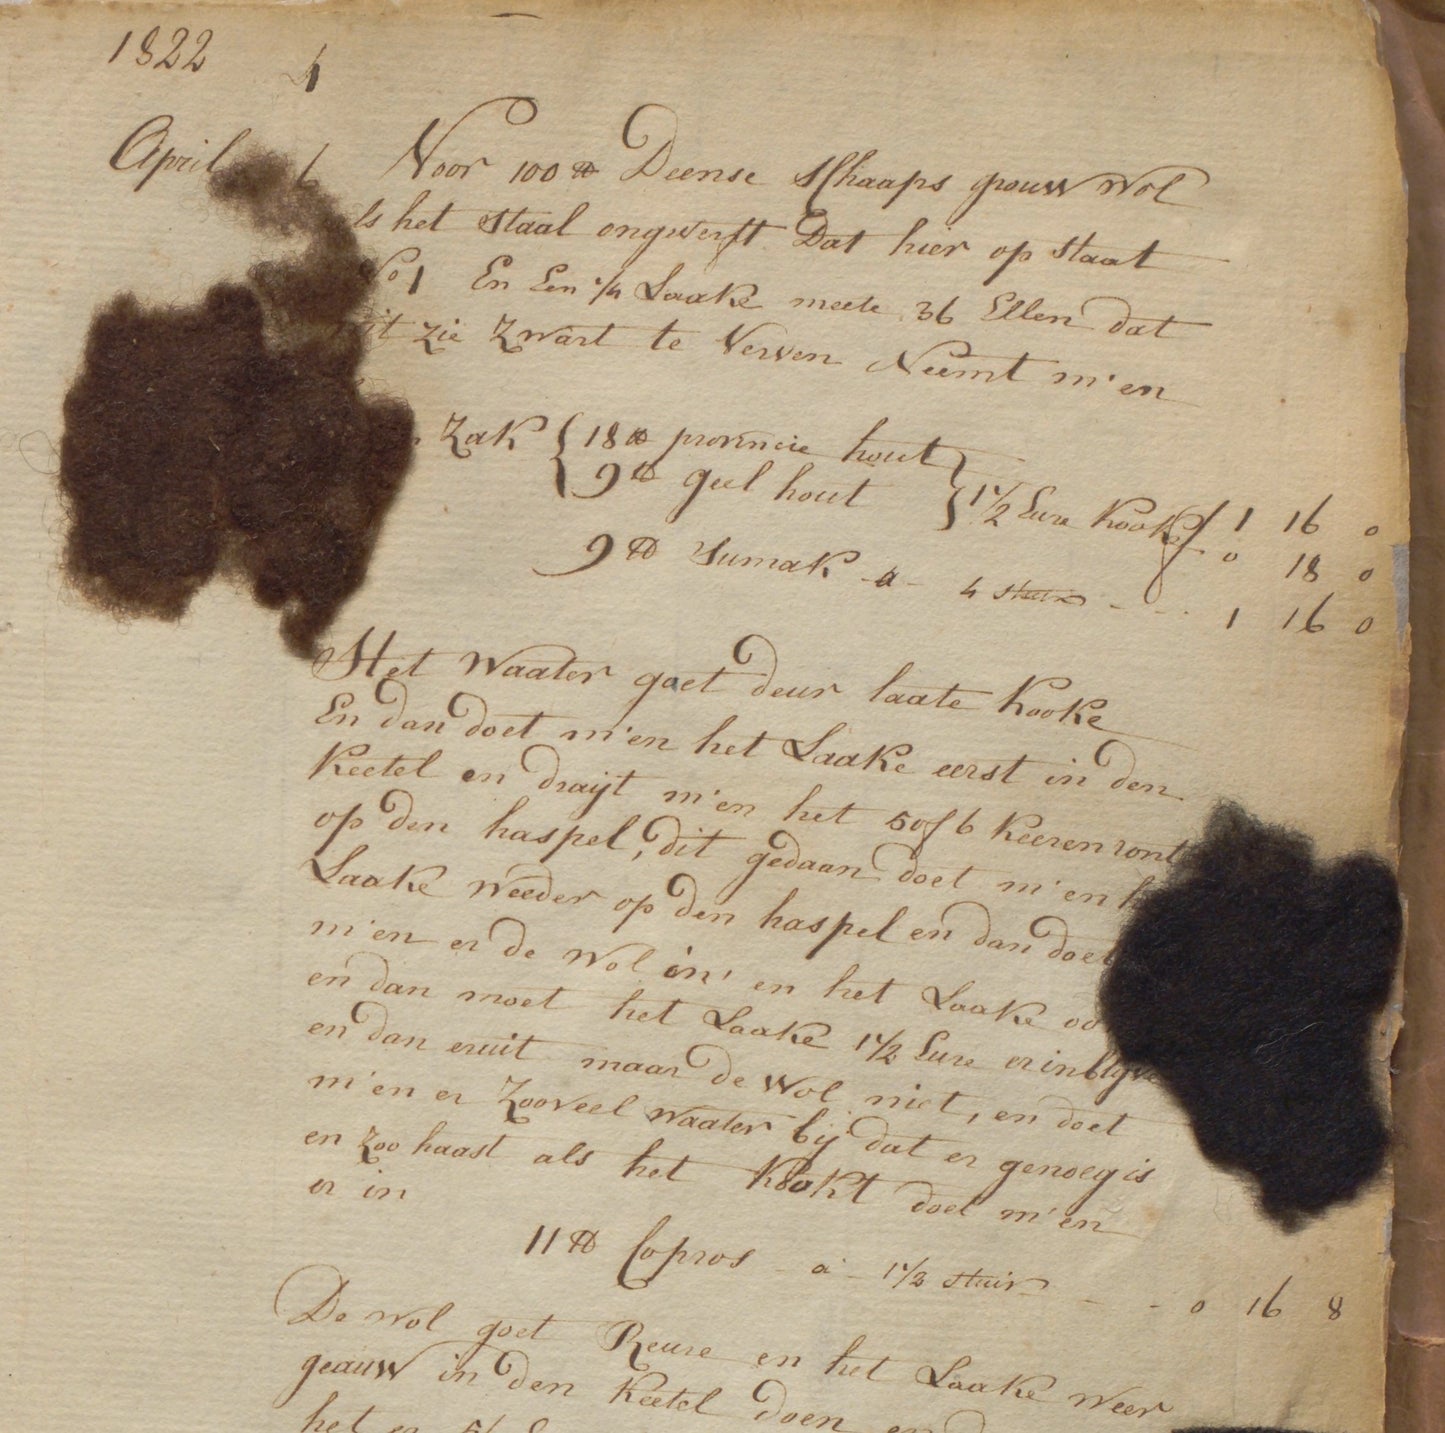 1822 4
April 1 Voor 100 ℔ Deense Schaaps grouw Wol
ls het Staal ongeverft Dat hier op staat
No 1 En Een ¼ Laake meete 36 Ellen dat
zie Zwart te Verven Neemt m'en
Zak { 18 ℔ provincie hout
9 ℔ geel hout } 1½ Eure Kook 1 16 0
0 18 0
9 ℔ Sumak a 4 stuir - - - 1 16 0
Het Waater goet deur laate Kooke
En dan doet m'en het Laake eerst in den
Keetel en draijt m'en het 5 of 6 Keeren ront
op den haspel, dit gedaan doet m'en h
Laake weeder op den haspel en dan doet
m'en er de Wol in' en het Laake oo
en dan moet het Laake 1½ Eure er inblyve
en dan eruit maar de Wol niet, en doet
m'en er Zooveel Waater bij dat er genoeg is
en Zoo haast als het Kookt doet m'en
er in
11 ℔ Copros - a - 1½ stuir - - 0 16 8
De Wol goet Reure en het Laake Weer
geauw in den Keetel doen en
het er